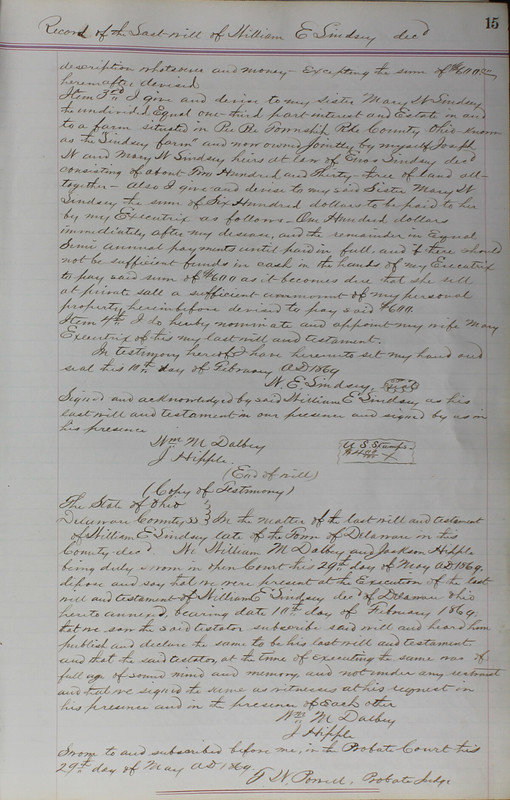 15
Record of the Last will of William E Lindsey dec'd
description whatsoever and money - Excepting the sum of $600
hereinafter devised
Item 3rd I give and devise to my sister Mary W Lindsey
the undivided Equal one-third part interest and Estate in and
to a farm situated in Township County Ohio known
as the "Lindsey farm" and now owned jointly by myself Joseph
W and Mary W Lindsey heirs at law of Enos Lindsey dec'd
consisting of about Two Hundred and Thirty-three of land all-
together - Also I give and devise to my said Sister Mary W
Lindsey the sum of Six Hundred dollars to be paid to her
by my Executrix as follows - One Hundred dollars
immediately after my decease, and the remainder in Equal
Semi annual payments until paid in full, and if there should
not be sufficient funds in cash in the hands of my Executrix
to pay said sum of $600 as it becomes due that she sell
at private sale a sufficient ammount of my personal
property hereinbefore devised to pay said $600.
Item 4th I do hereby nominate and appoint my wife Mary
Executrix of this my last will and testament.
In testimony hereof I have hereunto set my hand and
seal this 10th day of February AD 1869
W. E. Lindsey. Seal
Signed and acknowledged by said William E Lindsey as his
last will and testament in our presence and signed by us in
his presence
Wm M Dalbey
J Hipple.
U.S. Stamp
(End of will)
(Copy of Testimony)
The State of Ohio
Delaware County, SS } In the matter of the last will and testament
of William E Lindsey late of the Town of Delaware in this
County dec'd. We William M Dalbey and Jackson Hipple
being duly sworn in open Court this 29th day of May AD 1869.
depose and say that we were present at the Execution of the last
will and testament of William E Lindsey dec'd of Delaware Ohio
hereto annexed, bearing date 10th day of February 1869.
that we saw the said testator subscribe said will and heard him
publish and declare the same to be his last will and testament
and that the said testator, at the time of executing the same was of
full age of sound mind and memory and not under any restraint
and that we signed the same as witnesses at his request in
his presence and in the presence of Each other
Wm M Dalbey
J Hipple
Sworn to and subscribed before me, in the Probate Court this
29th day of May AD 1869.
T. W. Powell. Probate Judge